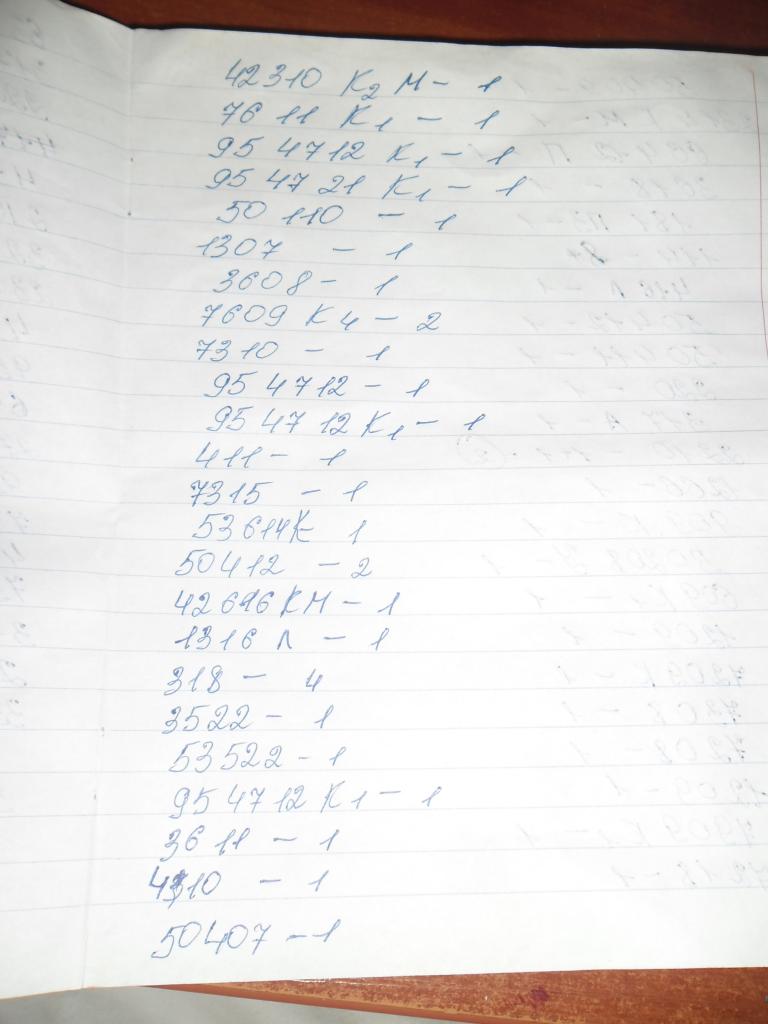 42310 К2 М - 1
7611 К1 - 1
954712 К1 - 1
954721 К1 - 1
50110 - 1
1307 - 1
3608 - 1
7609 К4 - 2
7310 - 1
954712 - 1
954712 К1 - 1
411 - 1
7315 - 1
53614К 1
50412 - 2
42616 КМ - 1
1316 Л - 1
318 - 4
3522 - 1
53522 - 1
954712 К1 - 1
3611 - 1
4310 - 1
50407 - 1